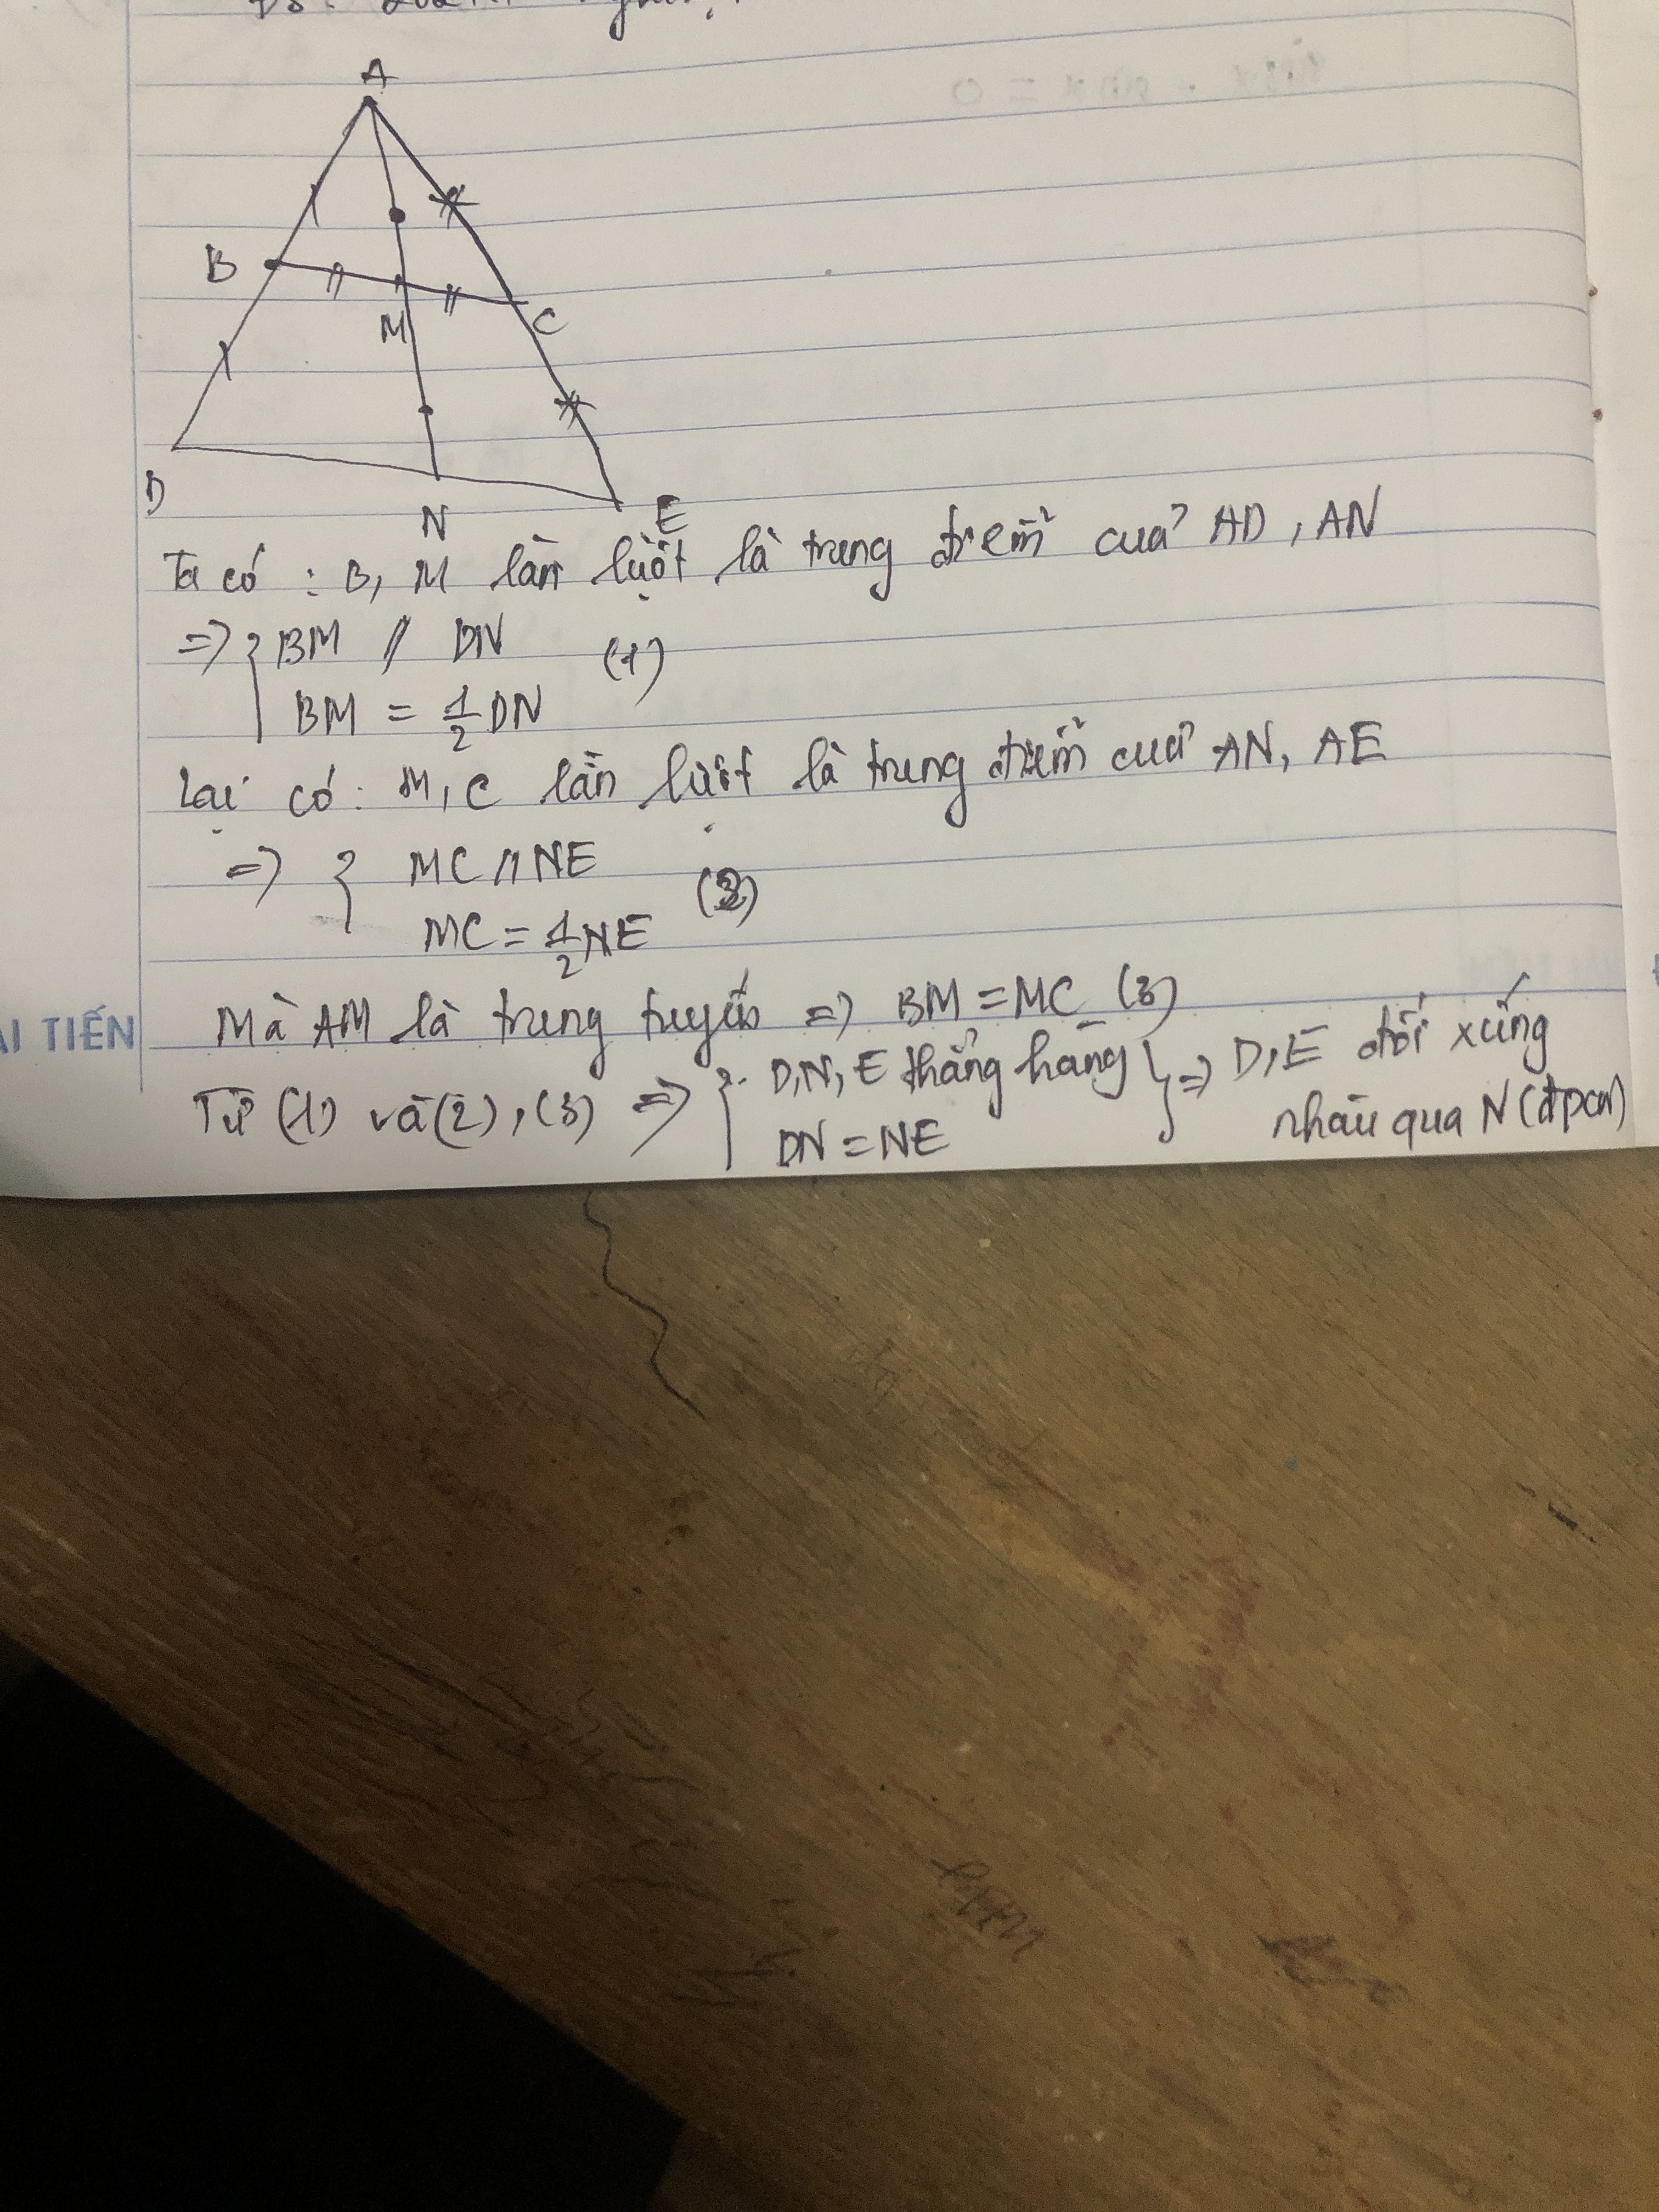 A
B
M
C
D
N
E
Ta có : B, M lần lượt là trung điểm của AD, AN
=> { BM // DN (1)
BM = 1/2 DN
Lại có: M, C lần lượt là trung điểm của AN, AE
=> { MC // NE (2)
MC = 1/2 NE
Mà AM là trung tuyến => BM = MC (3)
Từ (1) và (2), (3) => { D, N, E thẳng hàng } => D, E đối xứng
DN = NE nhau qua N (đpcm)
AI TIẾN